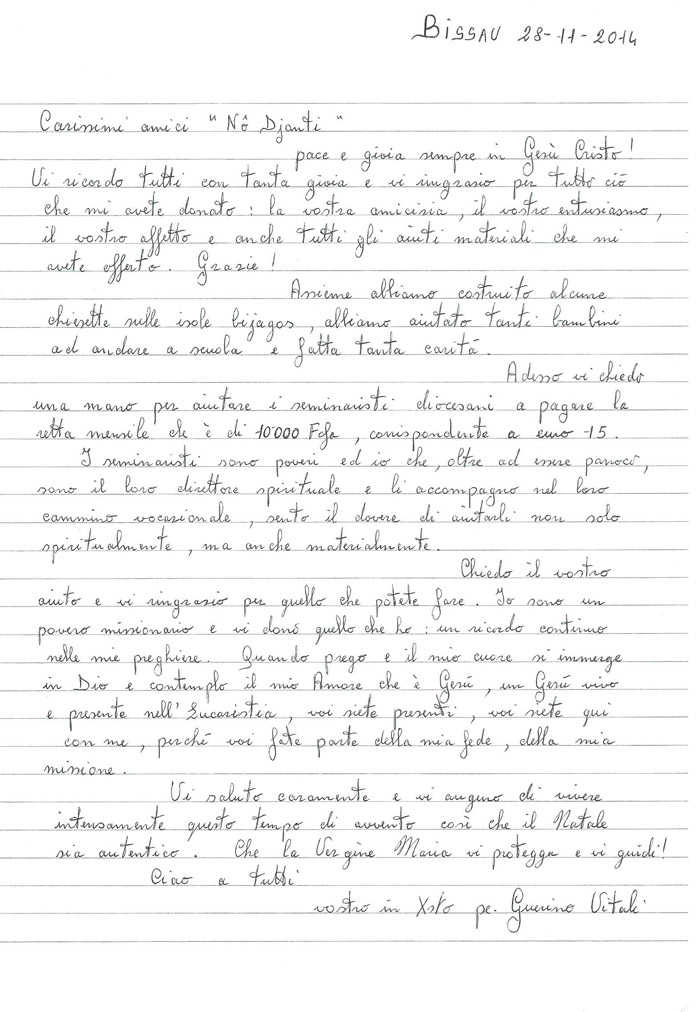 Bissau 28-11-2014
Carissimi amici "Nô Djanti"
pace e gioia sempre in Gesù Cristo!
Vi ricordo tutti con tanta gioia e vi ringrazio per tutto ciò
che mi avete donato: la vostra amicizia, il vostro entusiasmo,
il vostro affetto e anche tutti gli aiuti materiali che mi
avete offerto. Grazie!
Assieme abbiamo costruito alcune
chiesette sulle isole bijagos, abbiamo aiutato tanti bambini
ad andare a scuola e fatta tanta carità.
Adesso vi chiedo
una mano per aiutare i seminaristi diocesani a pagare la
retta mensile che è di 10'000 Fcfa, corrispondente a euro 15.
I seminaristi sono poveri ed io che, oltre ad essere parroco,
sono il loro direttore spirituale e li accompagno nel loro
cammino vocazionale, sento il dovere di aiutarli non solo
spiritualmente, ma anche materialmente.
Chiedo il vostro
aiuto e vi ringrazio per quello che potete fare. Io sono un
povero missionario e vi donò quello che ho: un ricordo continuo
nelle mie preghiere. Quando prego e il mio cuore si immerge
in Dio e contemplo il mio Amore che è Gesù, un Gesù vivo
e presente nell'Eucaristia, voi siete presenti, voi siete qui
con me, perché voi fate parte della mia fede, della mia
missione.
Vi saluto caramente e vi auguro di vivere
intensamente questo tempo di avvento così che il Natale
sia autentico. Che la Vergine Maria vi protegga e vi guidi!
Ciao a tutti
vostro in Xsto pe. Guerino Vitali